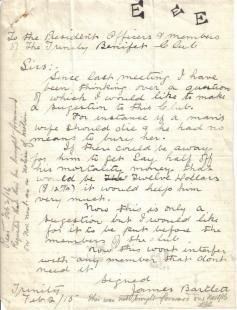 E & E
To the Resident Officers & members
of The Trinity Benifet Club
Sirs;
Since last meeting I have
been thinking over a question
of which I would like to make
a sugestion to this Club.
For instance if a man's
wife should die & he had no
means to bury her.
If there could be away
for him to get Say, half off
his mortality money. that
would be Twelve Dollars
it would help him
very much.
Now this is only a
sugestion but I would like
for it to be put before the
members of the club
Now this wont interfer
with any member that dont
need it
Signed
James Bartlett
Trinity
Feb 2/15
this was not brought forward